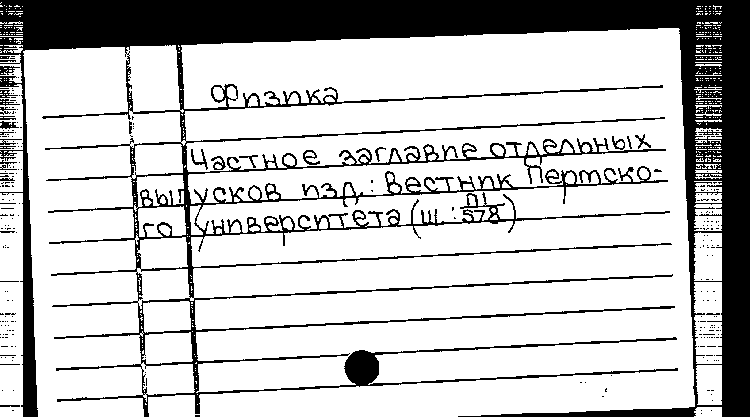 Физика
Частное заглавие отдельных
выпусков изд.: Вестник Пермско-
го университета (Ш.: П1/578)